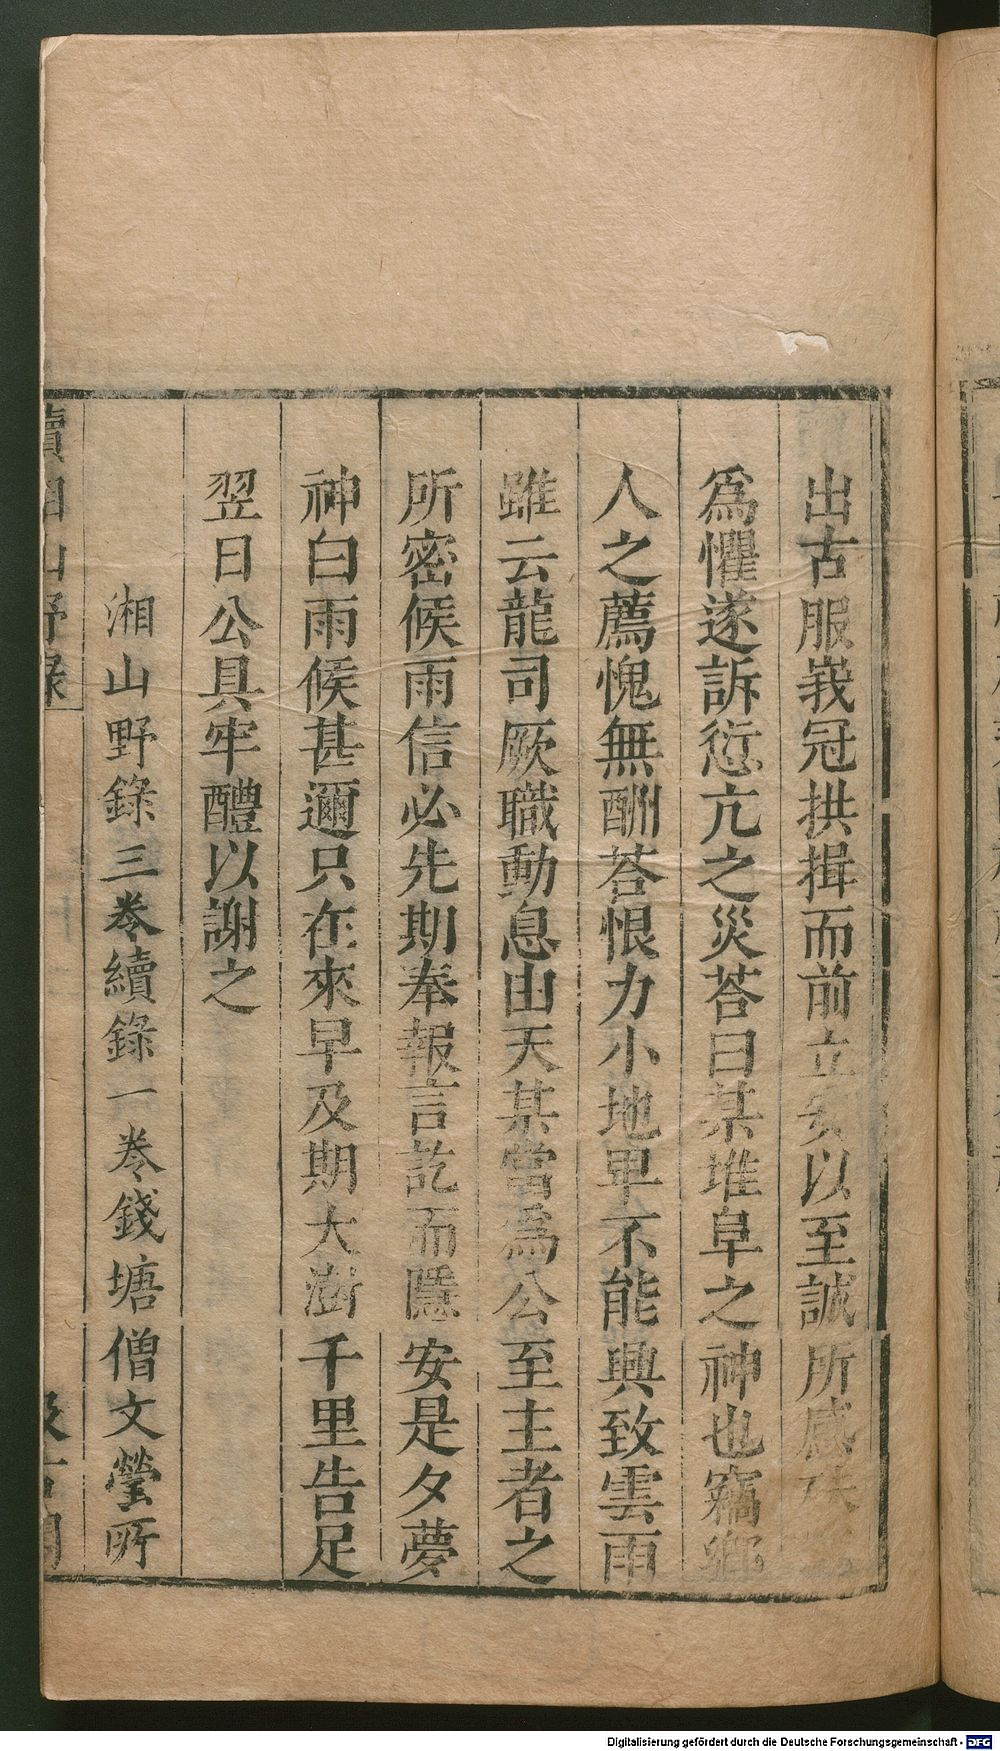 出古服峩冠拱揖而前立安以至誠所感殊
爲懼遂訴愆亢之災荅曰某堆阜之神也竊鄉
人之薦愧無酬荅恨力小地卑不能興致雲雨
雖云龍司厥職動息由天某當爲公至主者之
所密候雨信必先期奉報言訖而隱安是夕夢
神白雨候甚邇只在來早及期大澍千里告足
翌日公具牢醴以謝之
湘山野錄三卷續錄一卷錢塘僧文瑩所
續湘山野錄
汲古閣
Digitalisierung gefördert durch die Deutsche Forschungsgemeinschaft - DFG